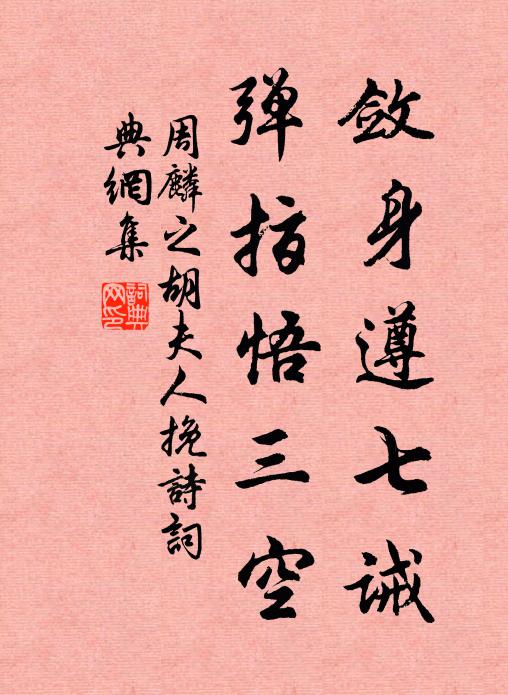 敛身遵七诫
弹指悟三空
周麟之胡夫人挽詩词
典網集
詞典网印